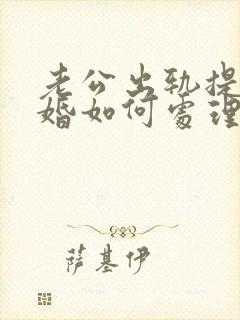 老公出轨提
婚如何處理
萨基伊